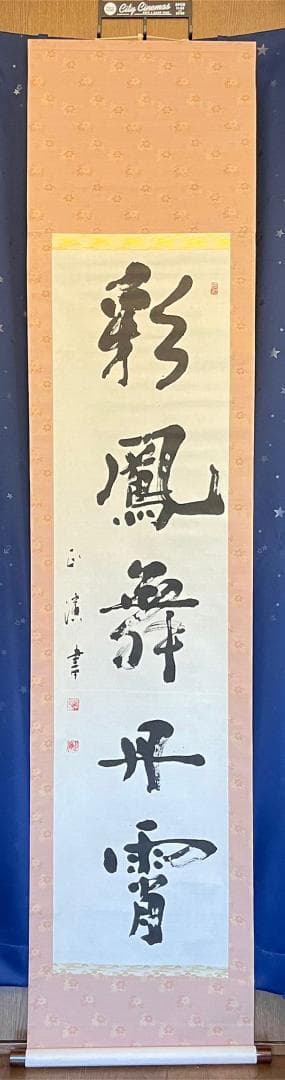 City Cinemas
彩鳳舞丹霄
正演書